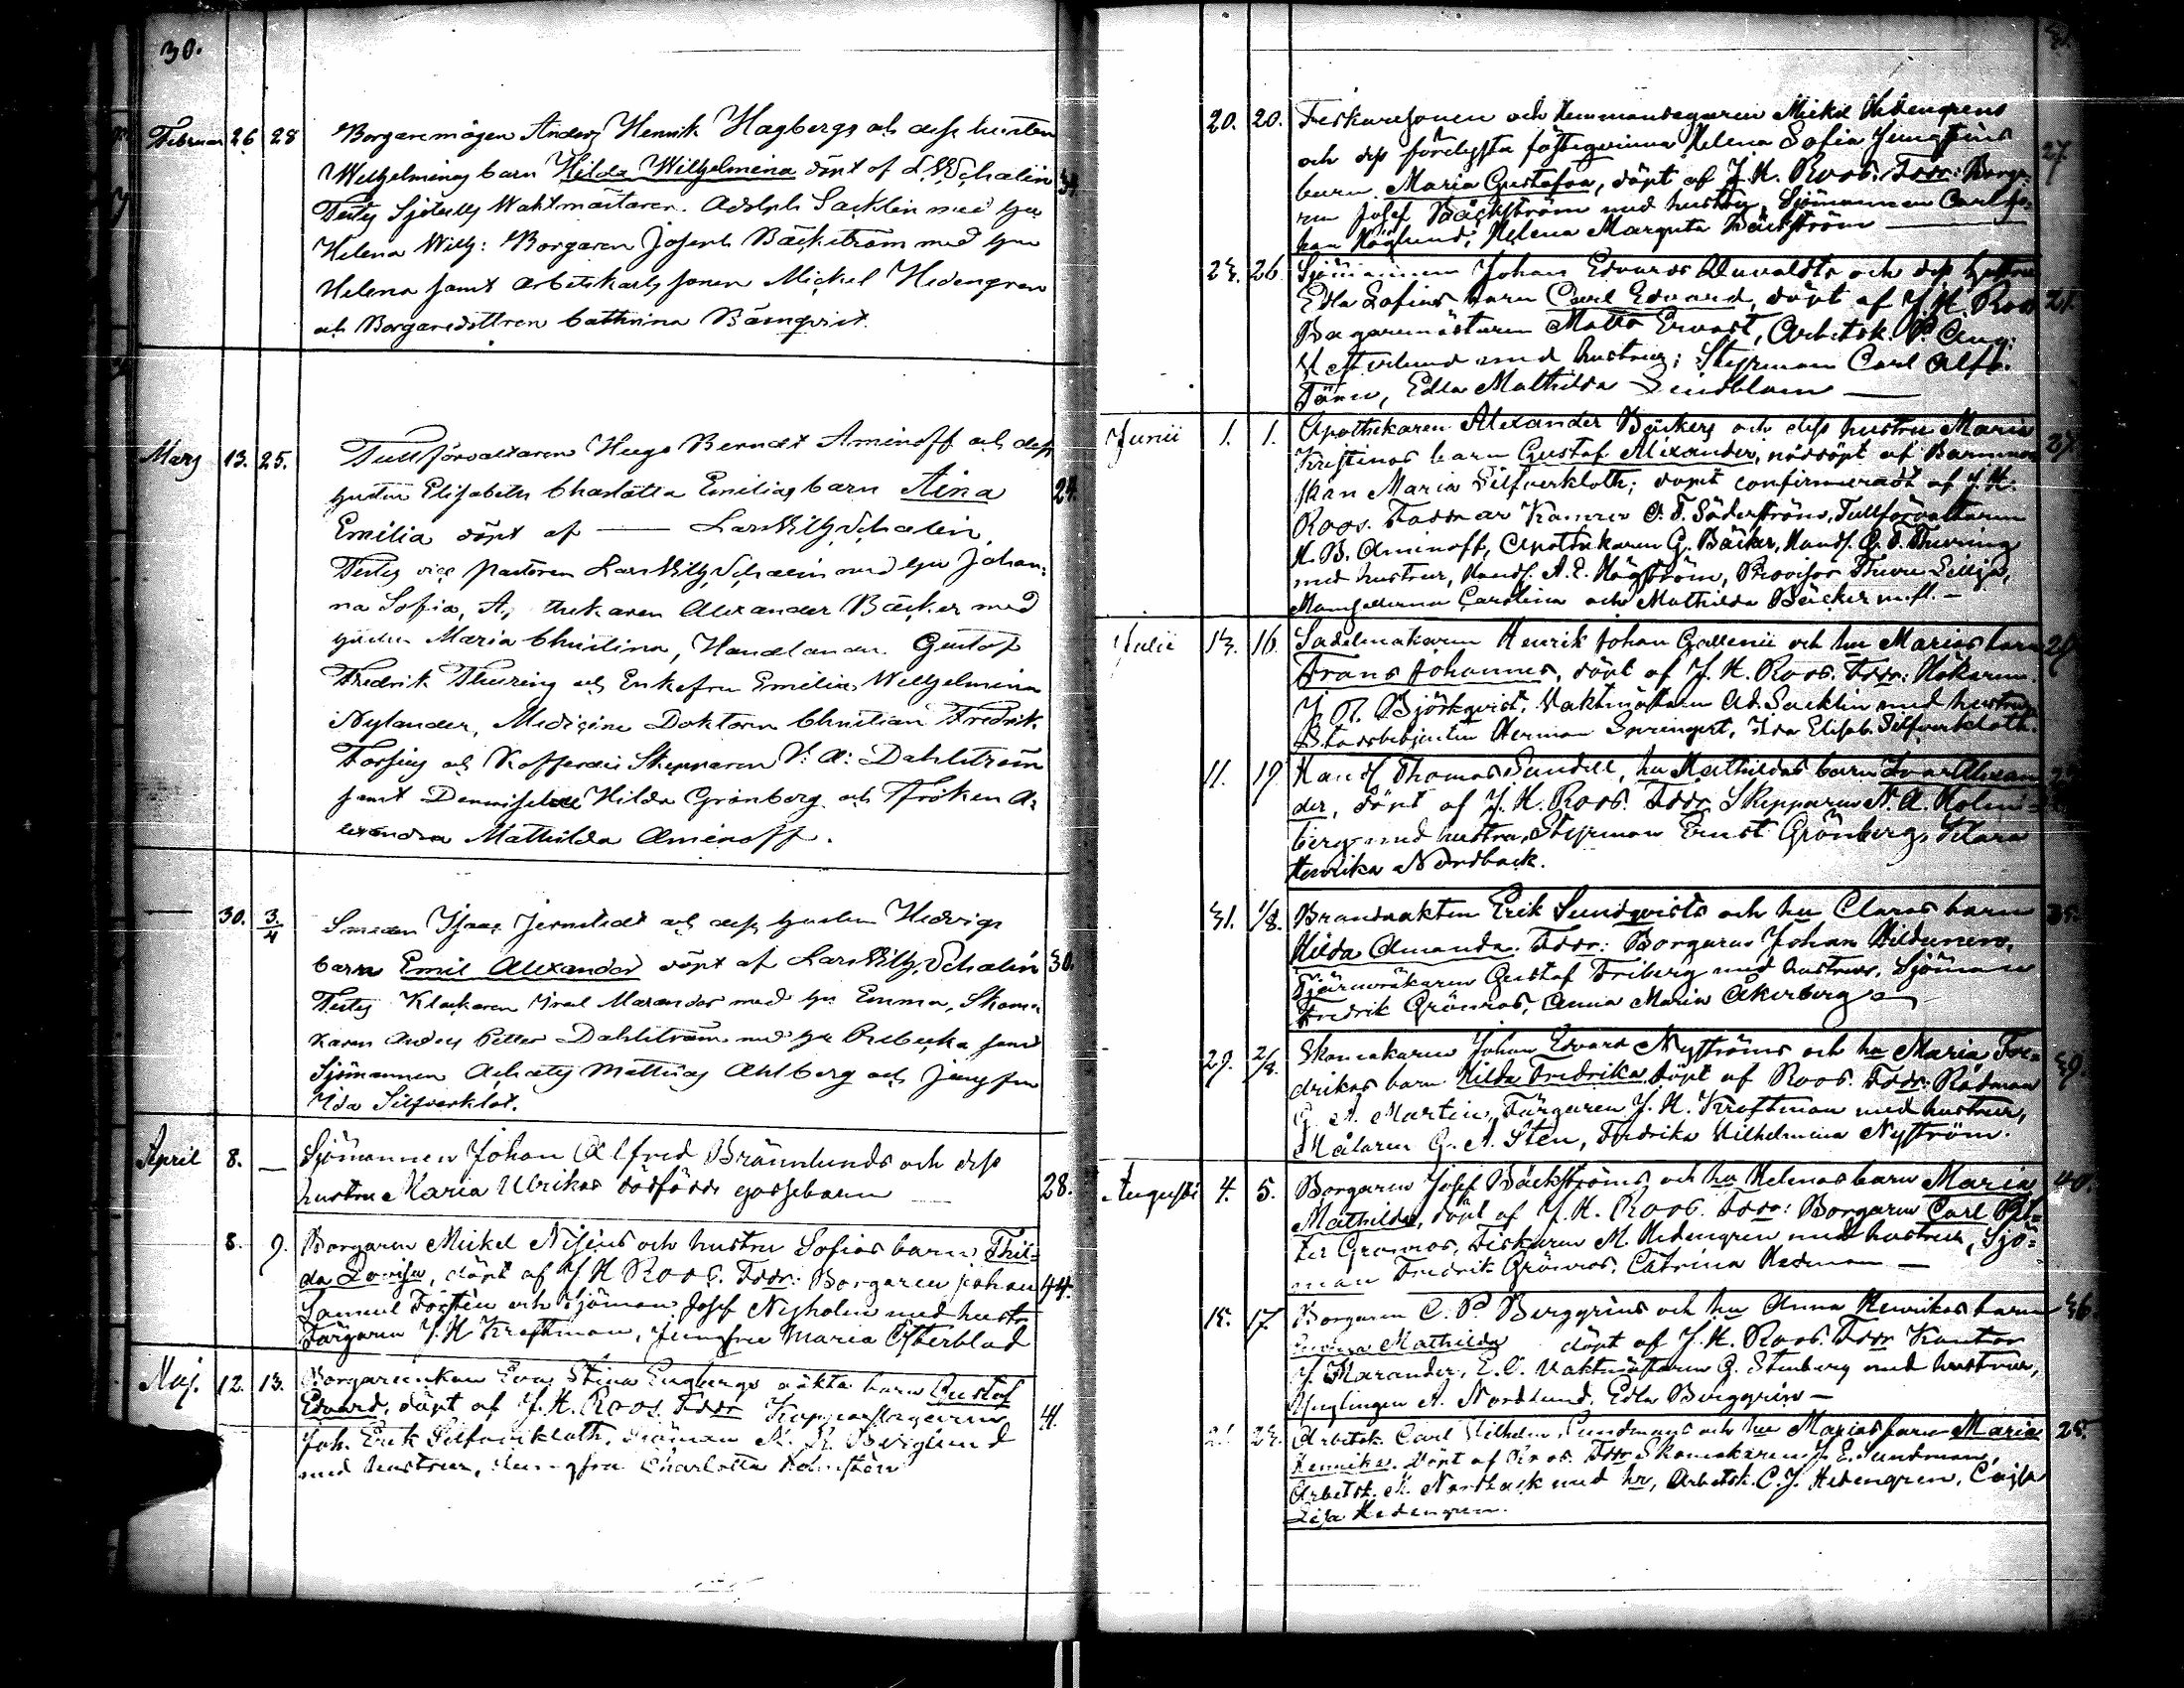 30.
Februar 26 28 Borgaremågen Anders Henrik Hagbergs och dess hustru
Wilhelminas barn Hilda Wilhelmina döpt af L. W. Schalin 34
Testes Sjötulls Waktmästaren Adolph Sacklin med hru
Helena Wilh: Borgaren Joseph Bäckström med hru
Helena samt arbetskarls sonen Mickel Hedengren
och Borgaredottren Cathrina Bäcnqvist.
Mars 13. 25. Tullförvaltaren Hugo Berndt Aminoff och dess
hustru Elisabeth Charlotta Emilias barn Aina 24.
Emilia döpt af — Lars Wilh. Schalin.
Testes vice pastoren Lars Wilh. Schalin med hru Johan:
na Sofia, A, thekaren Alexander Bäcker med
hustru Maria Christina, Handlanden Gustaf
Fredrik Thuring och Enkefru Emilia Wilhelmina
Nylander, Medicine Doktorn Christian Fredrik
Forsius och Kofferdie Skepparen V: A: Dahlström
samt Demoiselle Hilda Grönberg och Fröken A:
lexandra Mathilda Aminoff.
— 30. 3/4 Smeden Isaac Jernstedt och dess hustru Hedvigs
barn Emil Alexander döpt af Lars Wilh. Schalin 30.
Testes Klockaren Israel Marander med hru Emma, Skoma:
karen Anders Petter Dahlström med hru Rebecka samt
Sjömannen Achates Mattias Ahlberg och Jungfru
Ida Silfverklot.
April 8. — Sjömannen Johan Alfred Brännlunds och dess
hustru Maria Ulrikas dödfödde gossebarn — 28.
8. 9. Borgaren Mickel Niseus och hustru Sofias barn Thil=
da Lovisa, döpt af J. H. Roos. Fddr: Borgaren Johan 44.
Samuel Forstén och Sjöman Josef Nyholm med hustr.
Färgaren J. H. Kraftman, Jungfru Maria Österblad
Maj. 12. 13. Borgareenkan Eva Stina Engbergs oäkta barn Gustaf
Edvard, döpt af J. H. Roos. Fddr Kopparslagaren 41.
Joh. Erik Silfverkloth, Sjöman K. R. Berglund
med hustrur, Jungfru Charlotta Holmstén
20. 20. Fiskaresonen och Hemmansegaren Mickel Hedengrens
och dess förelysta fästeqvinna Helena Sofia Jungféns 27
barn Maria Gustafva, döpt af J. H. Roos. Fddr: Borga-
ren Josef Bäckström med hustru, Sjömannen Carl Jo-
han Höglund; Helena Margreta Bäckström —
23. 26. Sjömannen Johan Edvards Auvaldts och dess hustru
Edla Sofias barn Carl Edvard, döpt af J. H. Roos 21.
Bagaremästaren Matts Ervast, Arbetsk. P. Aug.
Vesterlund med hustrur; Styrman Carl Alfr.
Törn, Edla Mathilda Lindblom —
Junii 1. 1. Apothekaren Alexander Bäckers och dess hustru Maria
Kristinas barn Gustaf Alexander, nöddöpt af Barnmor
skan Maria Silfverkloth; dopet confirmeradt af J. H.
Roos. Faddrar Kamrer C. F. Söderström, Tullförvaltaren
H. B. Aminoff, Apothekaren G. Bäcker, Handl. G. F. Thuring
med hustrur, Handl. A. E. Högström, Provisor Thure Lillja,
Mamsellerna Carolina och Mathilda Bäcker m. fl. —
Julii 13. 16. Sadelmakaren Henrik Johan Gallenii och hu Marias barn 29
Frans Johannes, döpt af J. H. Roos. Fddr: Hökaren
J. A. Björkqvist, Vaktmästaren Ad. Sacklin med hustrur
Stadsbetjenten Herman Springert, Ida Elisab. Silfverkloth.
11. 19 Handl. Thomas Sundell, hu Mathildas barn Ivar Alexan
der, döpt af J. H. Roos. Fddr Skepparen N. A. Holm=
berg med hustru, Styrman Ernst Grönberg, Klara
Henrika Nordback.
31. 1/8. Brandvakten Erik Sundqvists och hu Claras barn 35.
Hilda Amanda. Fddr: Borgaren Johan Hildunen,
Tjärnvräkaren Gustaf Friberg med hustrur, Sjöman
Fredrik Grönros, Anna Maria Åkerberg —
29. 2/8. Skomakaren Johan Edvard Nyströms och hu Maria Fre-
drikas barn Hilda Fredrika döpt af Roos. Fddr: Rådman 39.
G. A. Martin, Färgaren J. H. Kraftman med hustrur,
Målaren G. A. Sten, Fredrika Wilhelmina Nyström.
Augusti 4. 5. Borgaren Josef Bäckströms och hu Helenas barn Maria 40.
Mathilda, döpt af J. H. Roos. Fddr: Borgaren Carl Pet=
ter Grönros, Fiskaren M. Hedengren med hustrur, Sjö=
man Fredrik Grönros, Catrina Hedman —
15. 17 Borgaren C. P. Berggrens och hu Anna Henrikas barn 36.
Mathilda döpt af J. H. Roos. Fddr Kantor
J. Marander, E. O. Vaktmästaren G. Stenberg med hustrur,
Ynglingen A. Nordlund, Edla Berggrén —
21. 23. Arbetsk. Carl Vilhelm Sundmans och hu Marias barn Maria 25.
Henrika. Döpt af Roos. Fddr Skomakaren J. E. Sundman,
Arbetsk. M. Nordback med hu, Arbetsk. C. J. Hedengren, Cajsa
Lisa Hedengren.